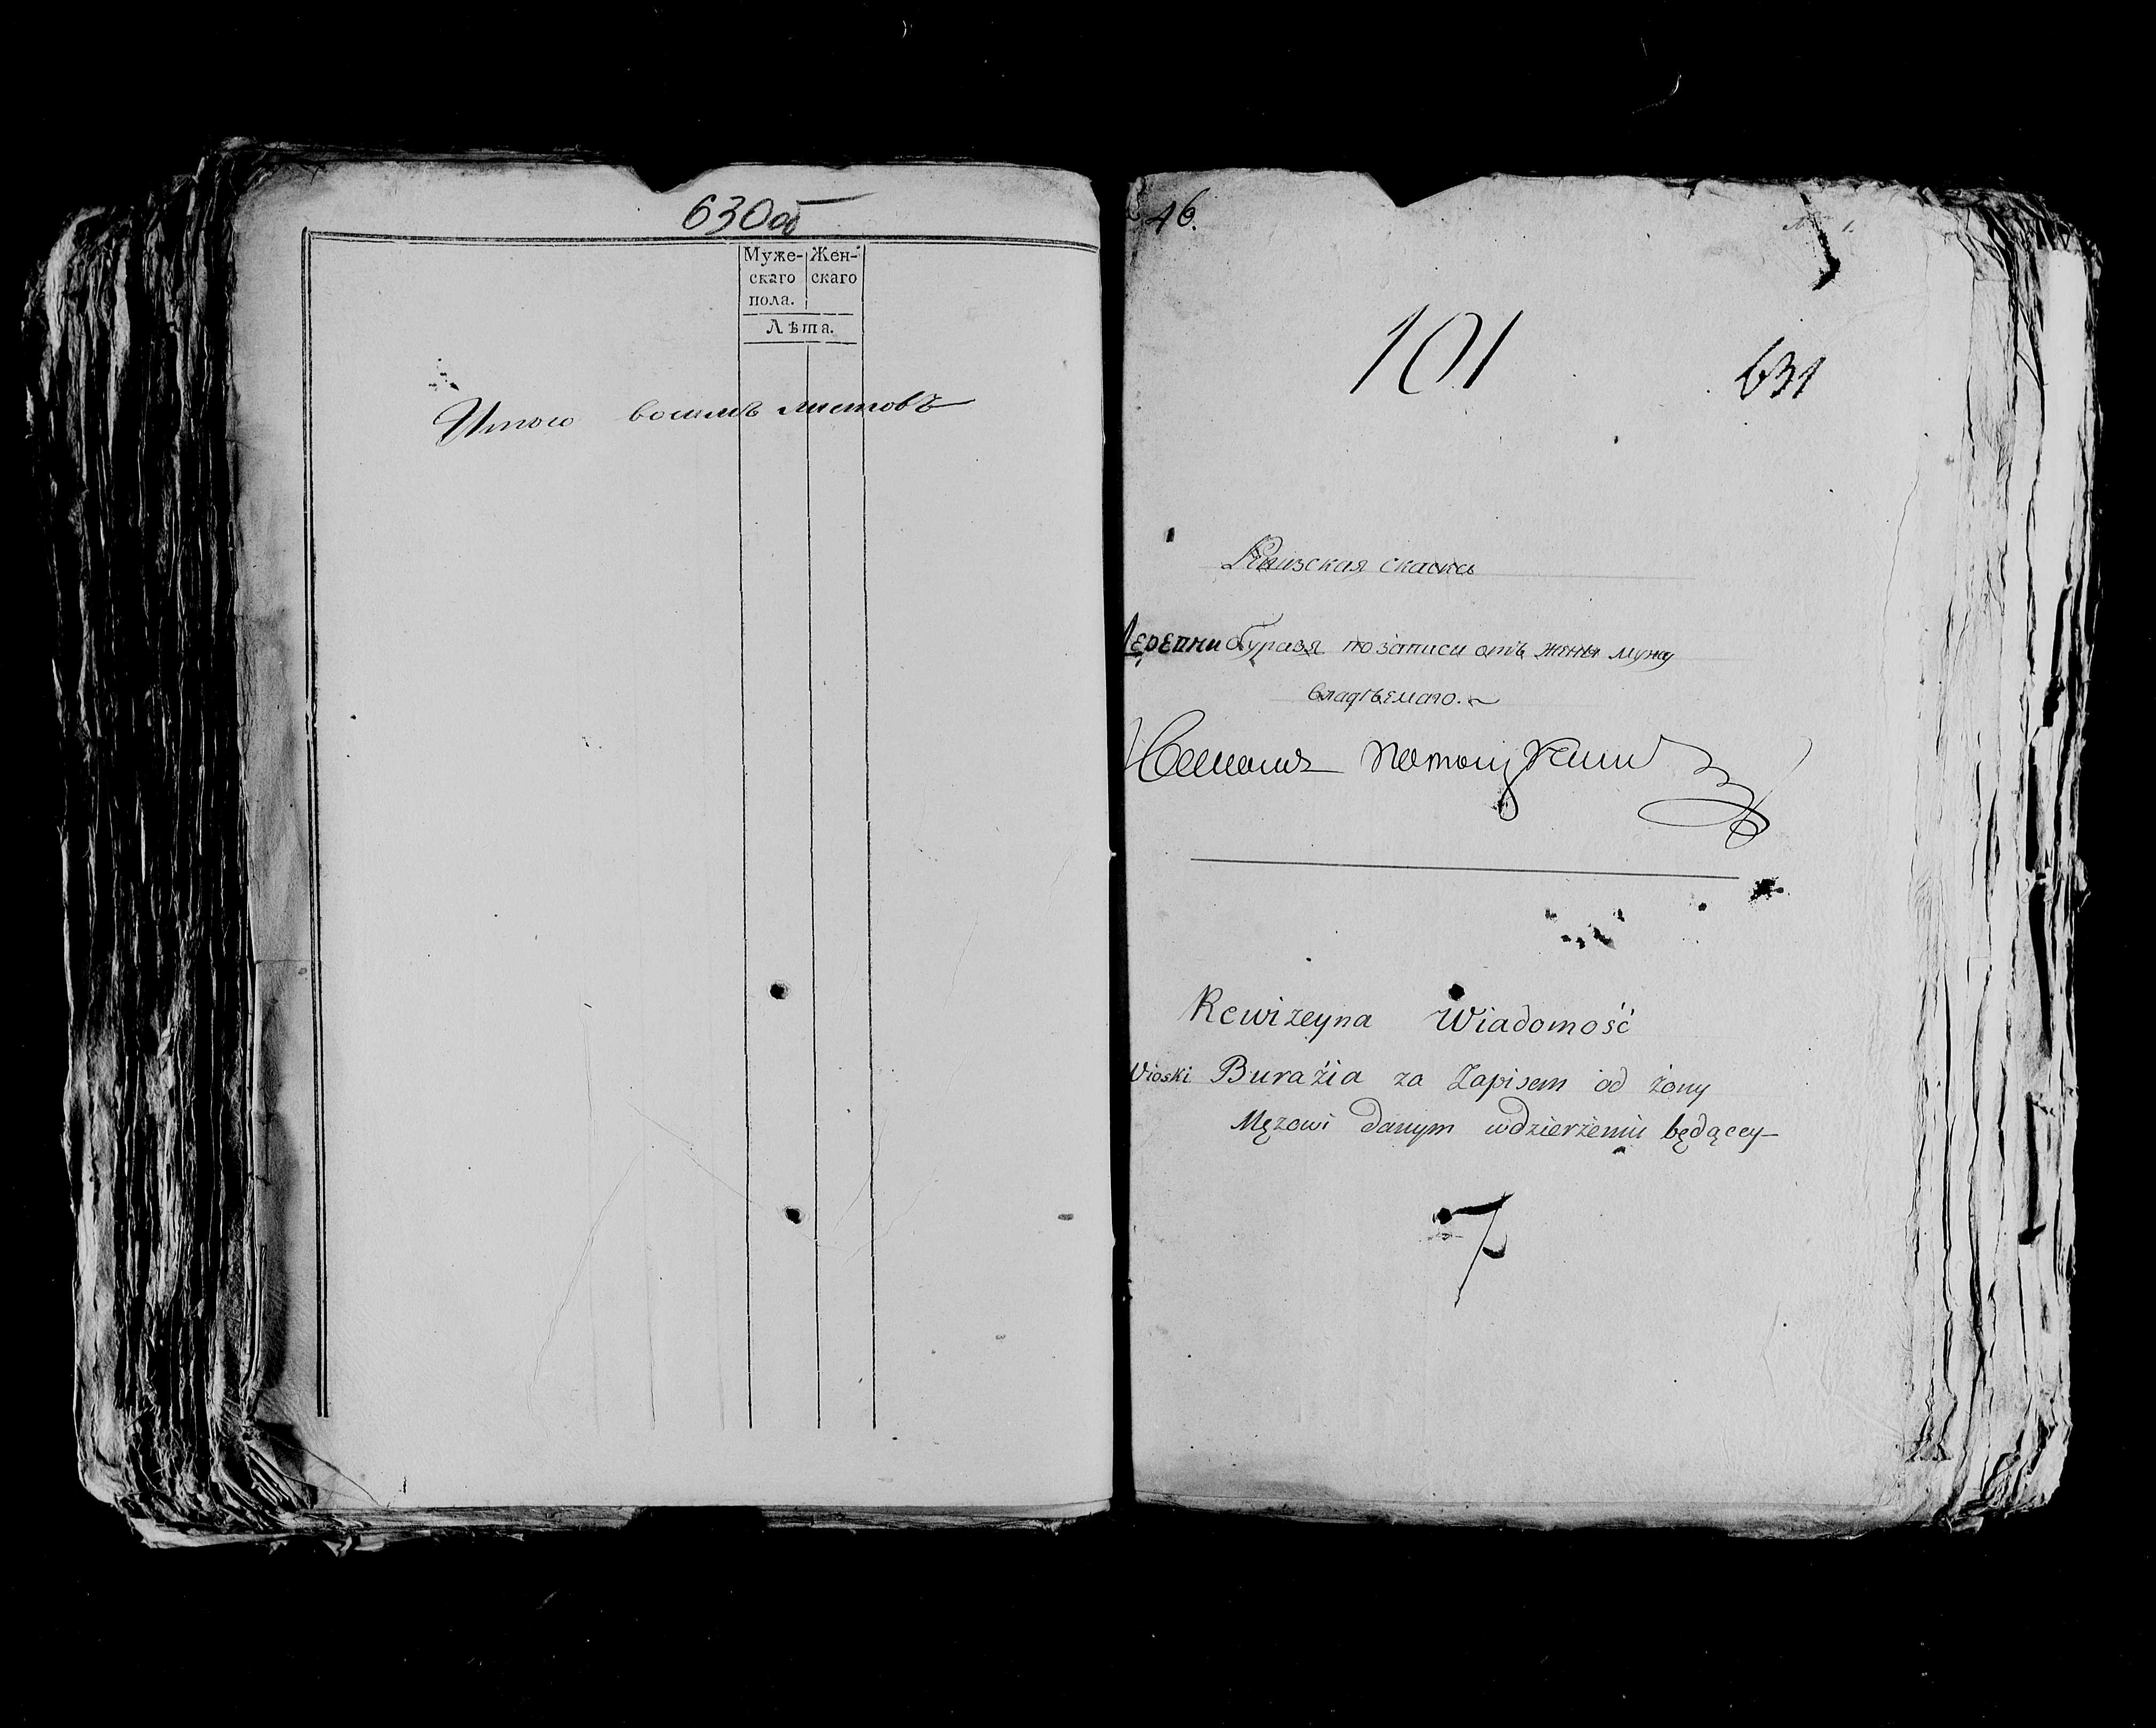 630об
Муже- Жен-
скаго скаго
пола.
Лѣта.
Итого восимъ листовъ
46.
101
631
Ревизская скаска
Деревни Буразя по записи отъ жены мужу
владѣемаго.
Потоцкимъ
Rewizeyna Wiadomość
Wioski Buraźia za Zapisem od żony
Mężowi danym wdzierżeniu będącey
7